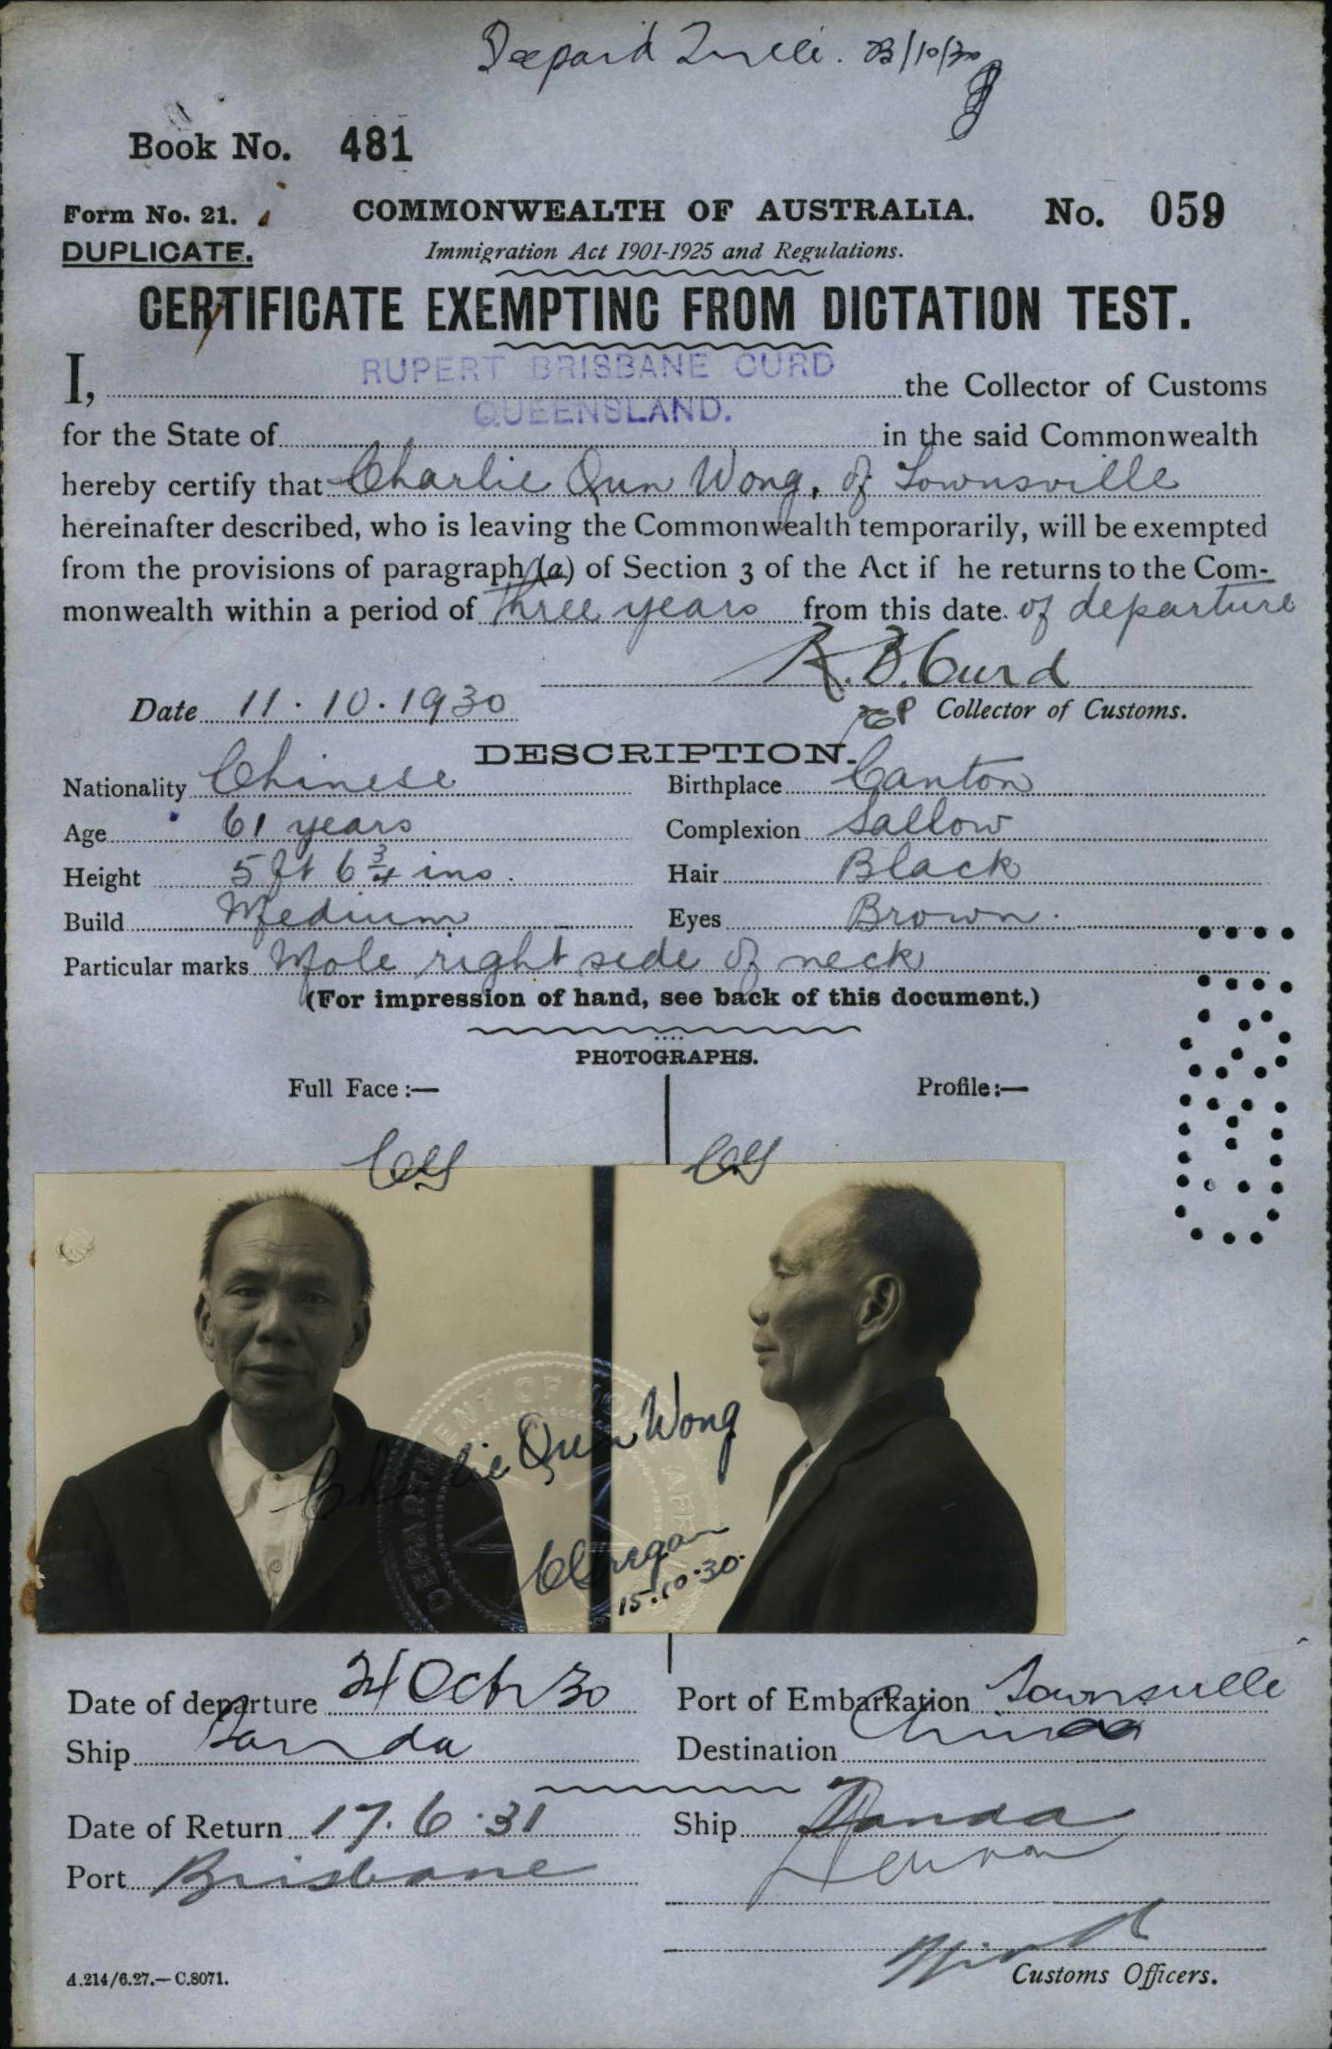 23/10/30
Book No. 481
Form No. 21. COMMONWEALTH OF AUSTRALIA. No. 059
DUPLICATE. Immigration Act 1901-1925 and Regulations.
CERTIFICATE EXEMPTING FROM DICTATION TEST.
RUPERT BRISBANE CURD
I, the Collector of Customs
QUEENSLAND.
for the State of in the said Commonwealth
hereby certify that Charlie Qun Wong, of Townsville
hereinafter described, who is leaving the Commonwealth temporarily, will be exempted
from the provisions of paragraph (a) of Section 3 of the Act if he returns to the Com-
monwealth within a period of Three years from this date of departure
R.B.Curd
Date 11.10.1930 Collector of Customs.
DESCRIPTION.
Nationality Chinese Birthplace Canton
Age 61 years Complexion Sallow
Height 5 ft 6 3/4 ins. Hair Black
Build Medium Eyes Brown.
Particular marks Mole right side of neck
(For impression of hand, see back of this document.)
PHOTOGRAPHS.
Full Face:— Profile:—
Charlie Qun Wong
15.10.30.
Date of departure 24 Octr 30 Port of Embarkation Townsville
Ship Tanda Destination China
Date of Return 17.6.31 Ship Tanda
Port Brisbane
Customs Officers.
A.214/6.27.—C.8071.